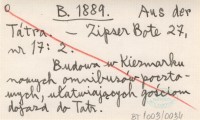 B. 1889. Aus der
Tátra. — Zipser Bote 27,
nr 17: 2.
Budowa w Kiezmarku
nowych omnibusów poczto-
wych, ułatwiających gościom
dojazd do Tatr.
BT 1003/0034